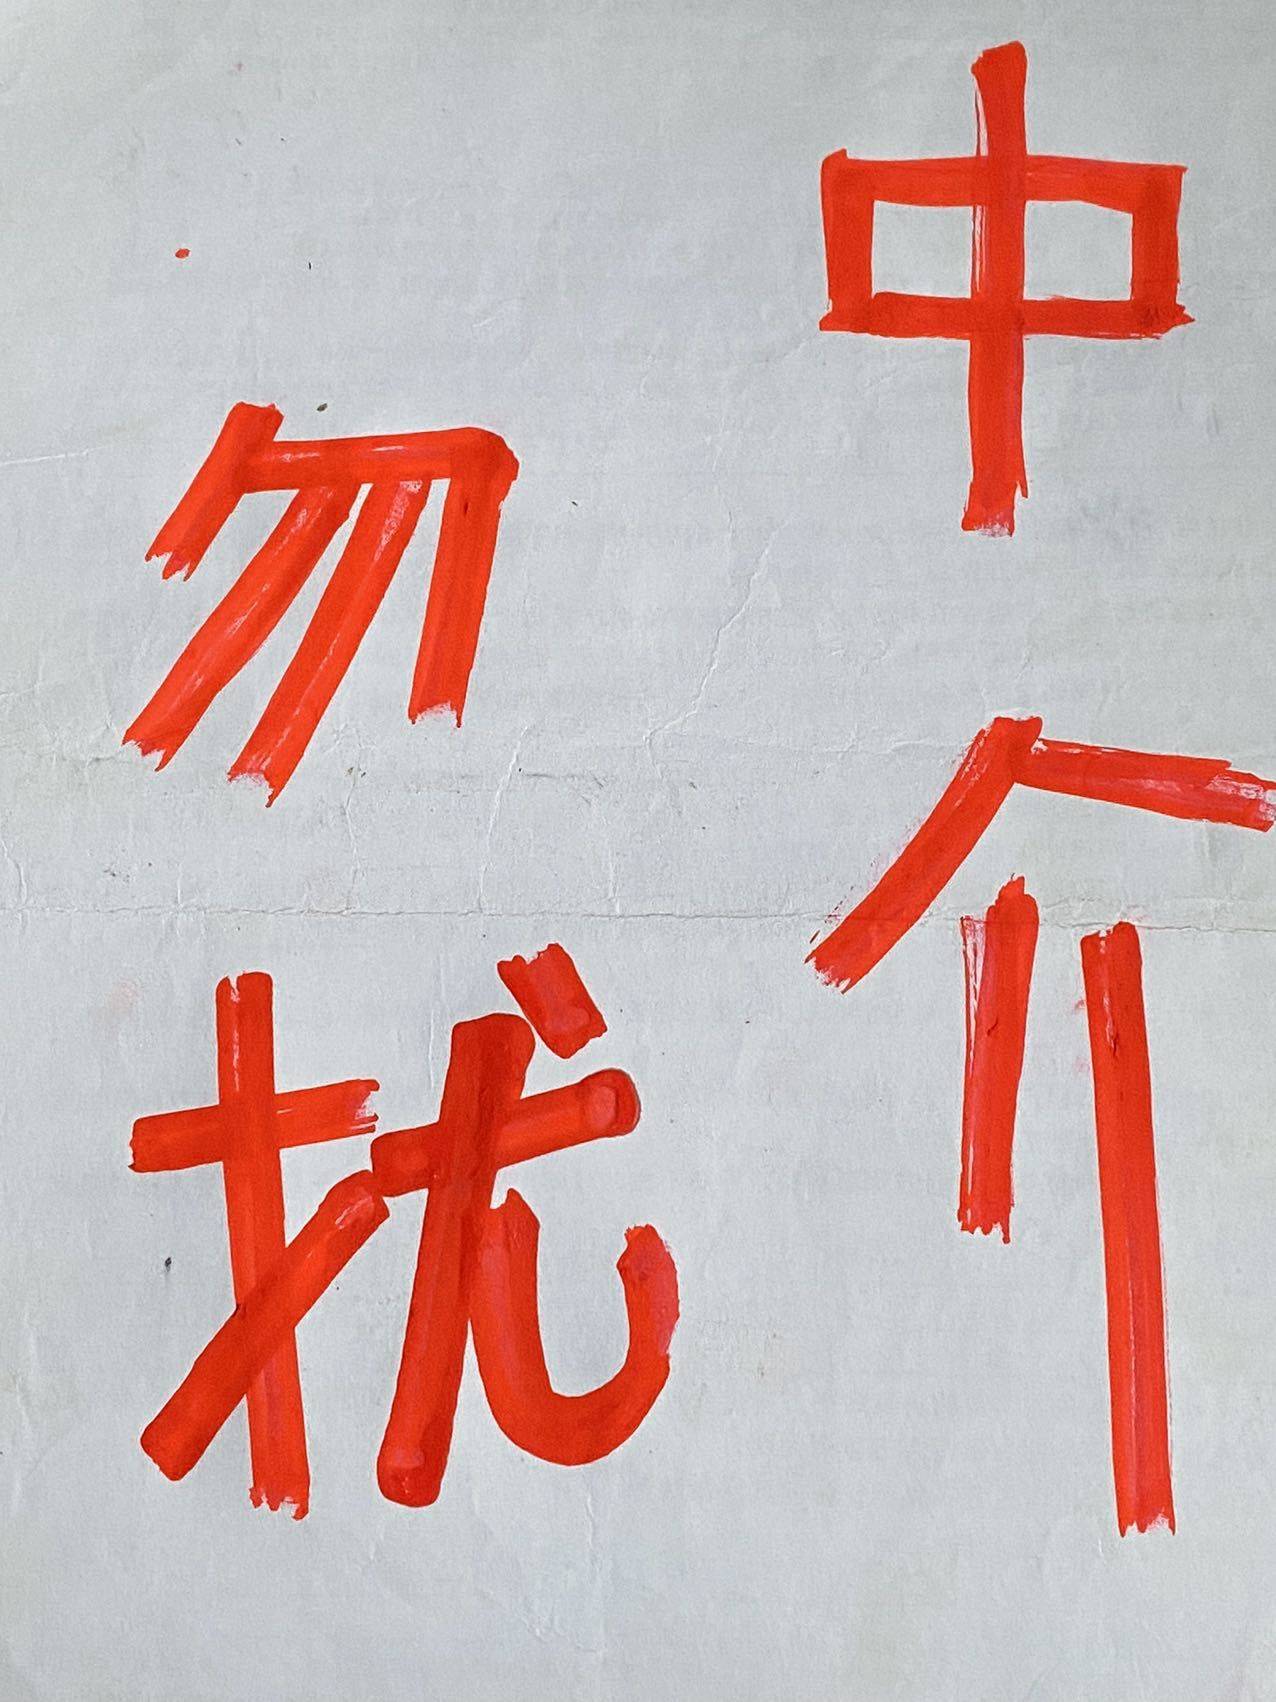 中介
勿扰